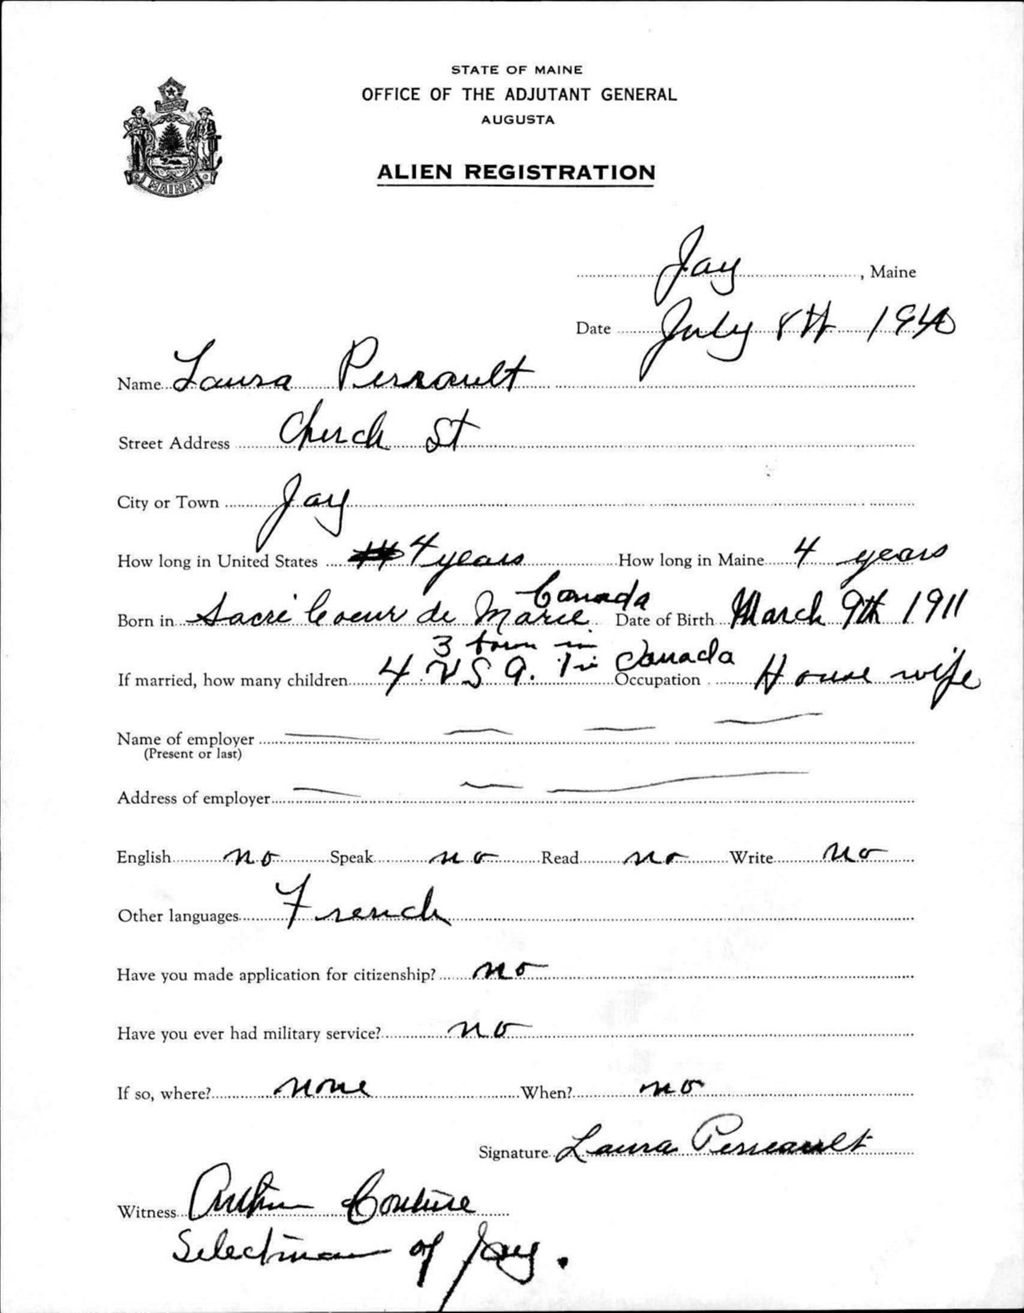 STATE OF MAINE
OFFICE OF THE ADJUTANT GENERAL
AUGUSTA
ALIEN REGISTRATION
MAINE
Jay, Maine
Date July 8th 1940
Name Laura Perrault
Street Address Church St
City or Town Jay
How long in United States 4 years How long in Maine 4 years
Born in Sacré Coeur de Marie Canada Date of Birth March 9th 1911
3 born in
If married, how many children 4 U.S A. 1 in Canada Occupation House wife
Name of employer
(Present or last)
Address of employer
English no Speak no Read no Write no
Other languages French
Have you made application for citizenship? no
Have you ever had military service? no
If so, where? none When? no
Signature Laura Perreault
Witness Arthur Couture
Selectman of Jay.